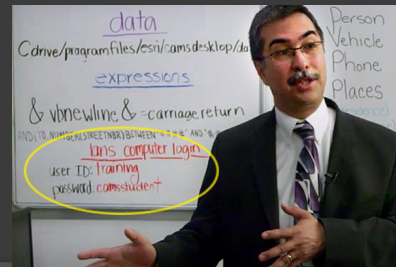 data
Cdrive/programfiles/esri/camsdesktop/da
expressions
& vbnewline & =carriage return
lans computer login
user ID: training
password: camsstudent
Person
Vehicle
Phone
Places